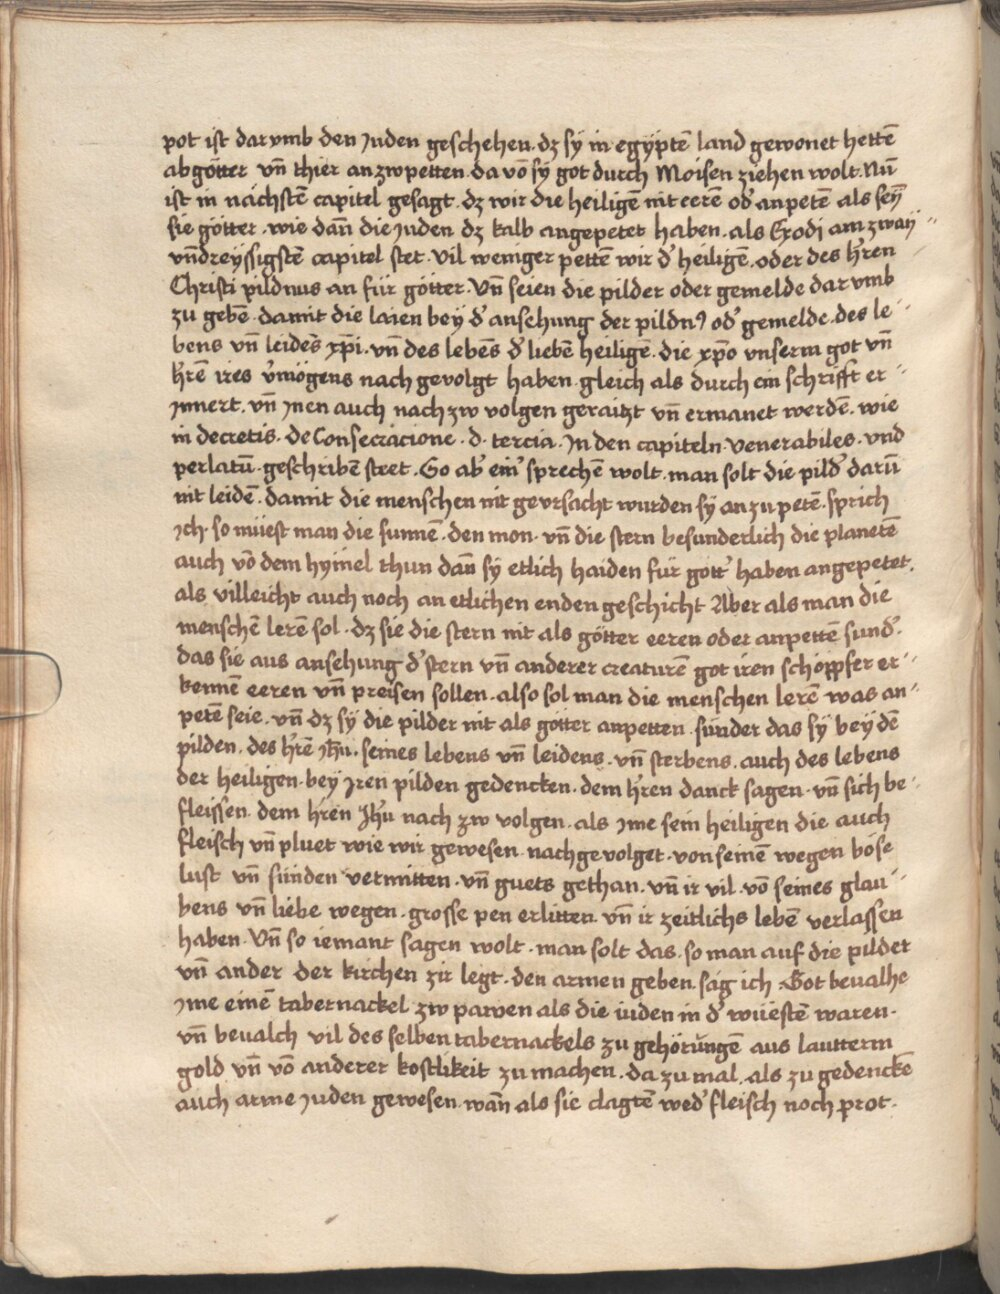 pot ist darvmb den Juden geschehen · dz sÿ in egÿptē land gewonet hettē
abgötter vn̄ thier anzwpetten · da vō sÿ got durch Moisen ziehen wolt · Nū
ist in nächstē capitel gesagt · dz wir die heiligē nit eerē od' anpetē als seÿ̄
sie götter · wie dan̄ die Juden dz kalb angepetet haben · als Exodi am zwaÿ-
vn̄dreÿssigstē capitel stet · Vil weniger pettē wir d' heiligē · oder des h'ren
Christi pildnus an für götter · Vn̄ seien die pilder oder gemelde darvmb
zu gebē · damit die laien beÿ d' ansehung der pildnꝰ od' gemelde · des le-
bens vn̄ leidēs xp̄i · vn̄ des lebēs d' liebē heiligē · die xp̄o vnserm got vn̄
h'rē ires v'mögens nach gevolgt haben · gleich als durch ein schrifft er-
Jnnert · vn̄ Jnen auch nach zw volgen geraitzt vn̄ ermanet werdē · wie
in decretis · de Consecracione · d · tercia · Jn den capiteln · Venerabiles · vnd
perlatū · geschribē steet · So ab' ein' sprechē wolt · man solt die pild' darū
nit leidē · damit die menschen nit gevrsacht wurden sÿ an zu petē · sprich
Jch · so müest man die sunnē · den mon · vn̄ die stern besunderlich die planetē
auch vō dem hÿmel thun dan̄ sÿ etlich haiden für gött' haben angepetet ·
als villeicht auch noch an etlichen enden geschicht Aber als man die
menschē lerē sol · dz sie die stern nit als götter eeren oder anpettē sund' ·
das sie aus ansehung d' stern vn̄ anderer creaturē got iren schöppfer er-
kennē eeren vn̄ preisen sollen · also sol man die menschen lerē was an-
petē seie · vn̄ dz sÿ die pilder nit als götter anpetten · sunder das sÿ beÿ dē
pilden · des h'rē Jh̄u · seines lebens vn̄ leidens · vn̄ sterbens · auch des lebens
der heiligen · beÿ Jren pilden gedencken · dem h'ren danck sagen · vn̄ sich be-
fleissen · dem h'ren Jh̄u nach zw volgen · als Jme sein heiligen die auch
fleisch vn̄ pluet wie wir gewesen · nachgevolget · von seinē wegen böse
lust vn̄ sünden vermitten · vn̄ guets gethan · vn̄ ir vil · vō seines glau-
bens vn̄ liebe wegen · grosse pen erlitten · vn̄ ir zeitlichs lebē verlassen
haben · Vn̄ so iemant sagen wolt · man solt das · so man auf die pilder
vn̄ ander der kirchen zir legt · den armen geben · sag ich · Got bevalhe
Jme einē tabernackel zw pawen als die iuden in d' wüestē waren ·
vn̄ bevalch vil des selben tabernackels zu gehörungē aus lautterm
gold vn̄ vō anderer kostlikeit zu machen · da zu mal · als zu gedenckē
auch arme Juden gewesen · wan̄ als sie clagtē wed' fleisch noch prot ·